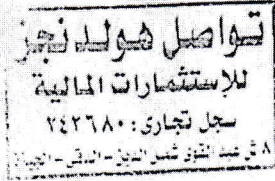 تواصل هولدنجز
للإستثمارات المالية
سجل تجارى: ٢٤٢٦٨٠
٨ ش عبد القوى شمس الدين - الدقى - الجيزة